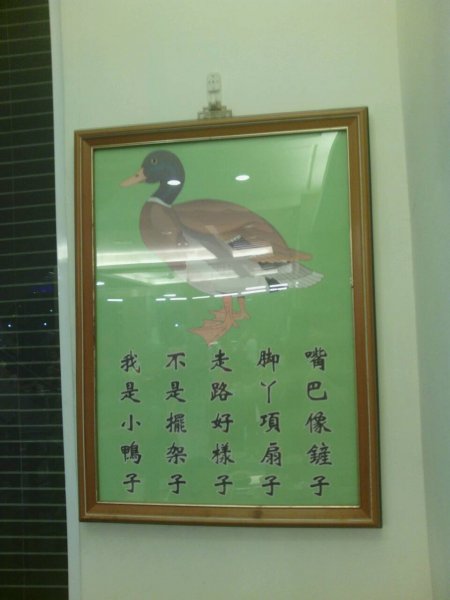 嘴巴像鏟子
脚丫項扇子
走路好樣子
不是擺架子
我是小鴨子